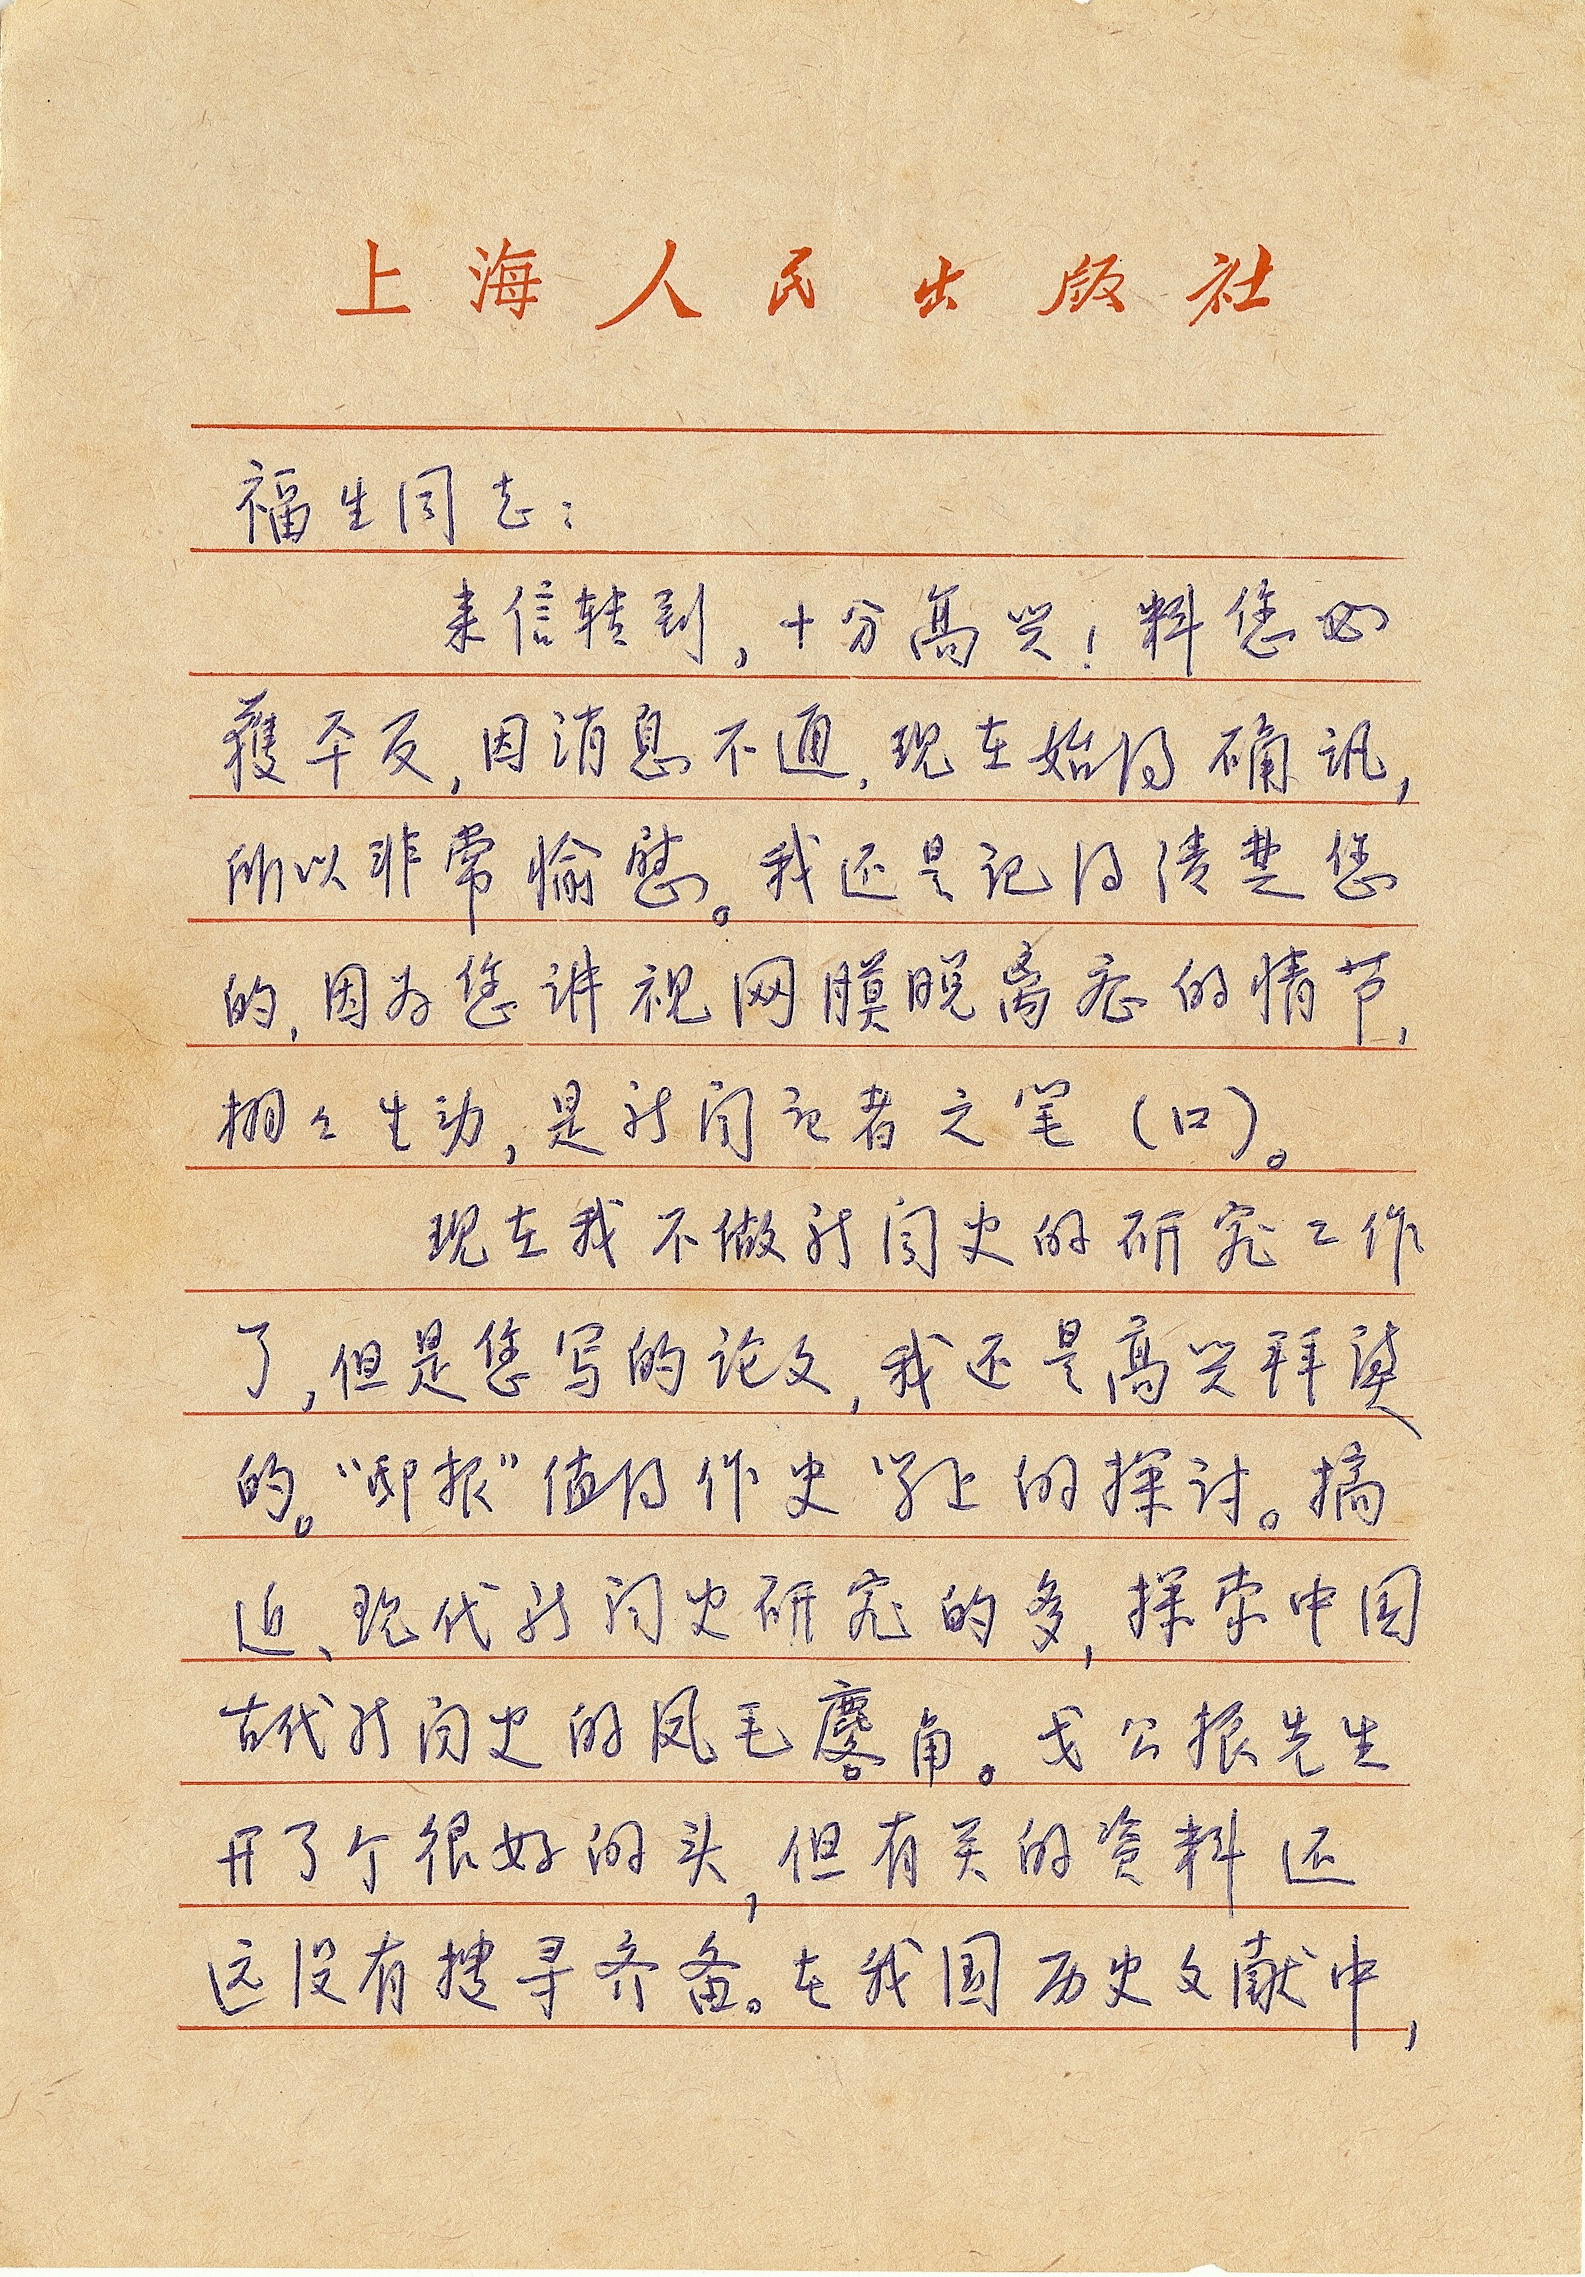 上海人民出版社
福生同志：
来信转到，十分高兴！料您必
獲平反，因消息不通，现在始得确讯，
所以非常愉慰。我还是记得清楚您
的，因为您讲视网膜脱离症的情节，
栩々生动，是新闻记者之笔（口）。
现在我不做新闻史的研究工作
了，但是您写的论文，我还是高兴拜读
的。“邸报”值得作史学上的探讨。搞
近、现代新闻史研究的多，探索中国
古代新闻史的凤毛麐角。戈公振先生
开了个很好的头，但有关的资料还
远没有搜寻齐备。在我国历史文献中，